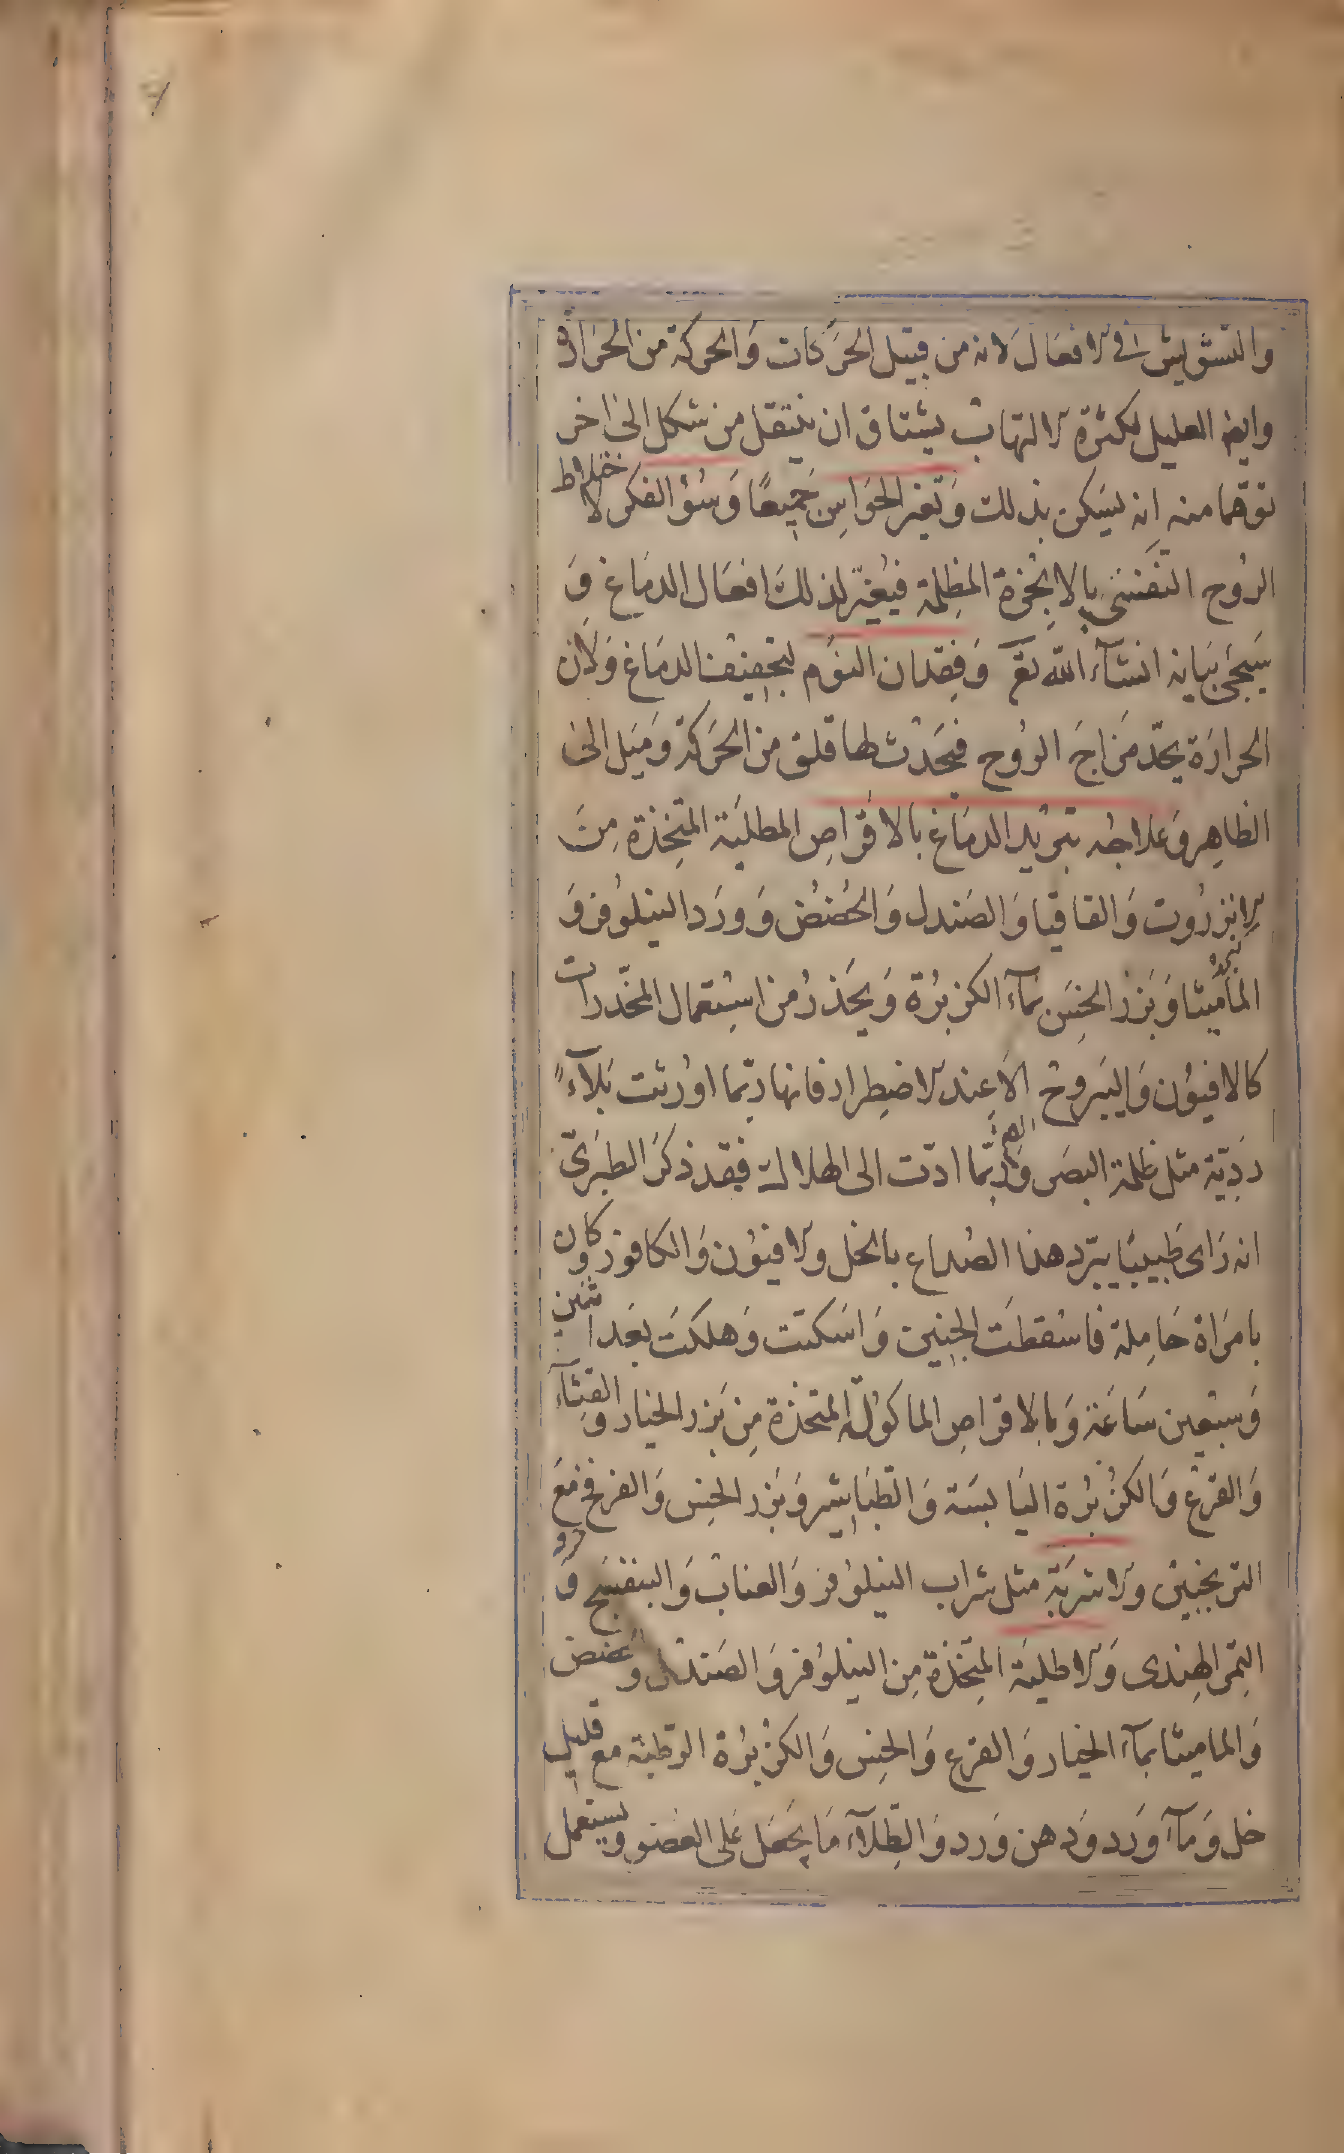 والتشويش فى الافعال لانه من قبيل الحركات والحركة من الحرارة
وايضا العليل لكثرة الالتهاب يشتاق ان ينتقل من شكل الى اخر
توقعا منه انه يسكن بذلك وتغير الحواس جميعا وسؤ الفكر لاختلاط
الروح النفسى بالابخرة المظلمة فيغير لذلك افعال الدماغ و
سيجئ بيانه انشآء الله تعـ وفقدان النوم لتجفيف الدماغ ولان
الحرارة يحد مزاج الروح فيحدث لها قلق من الحركة وميل الى
الظاهر وعلاجه تبريد الدماغ بالاقراص المطلية المتخذة من
الانزروت والقاقيا والصندل والحضض وورد النيلوفر و
الماميثا وبزر الخس بمآء الكزبرة ويحذر من استعمال المخدرات
كالافيون واليبروح الا عند الاضطرار فانها ربما اورثت بلآءً
رديّة مثل ظلمة البصر وربما ادت الى الهلاك فقد ذكر الطبرى
انه راى طبيبا يبرد هذا الصداع بالخل والافيون والكافور وكان
بامراة حاملة فاسقطت الجنين واسكتت وهلكت بعد اثنين
وسبعين ساعة وبالاقراص الماكولة المتخذة من بزر الخيار والقثآء
والقرع والكزبرة اليابسة والطباشير وبزر الخس والفرفخ مع
الترنجبين والاشربة مثل شراب النيلوفر والعناب والبنفسج و
التمر الهندى والاطلية المتخذة من النيلوفر والصندل والحضض
والماميثا بمآء الخيار والقرع والخس والكزبرة الرطبة مع قليل
خل ومآء ورد ودهن ورد والطلآء ما يجعل على العضو ويستعمل